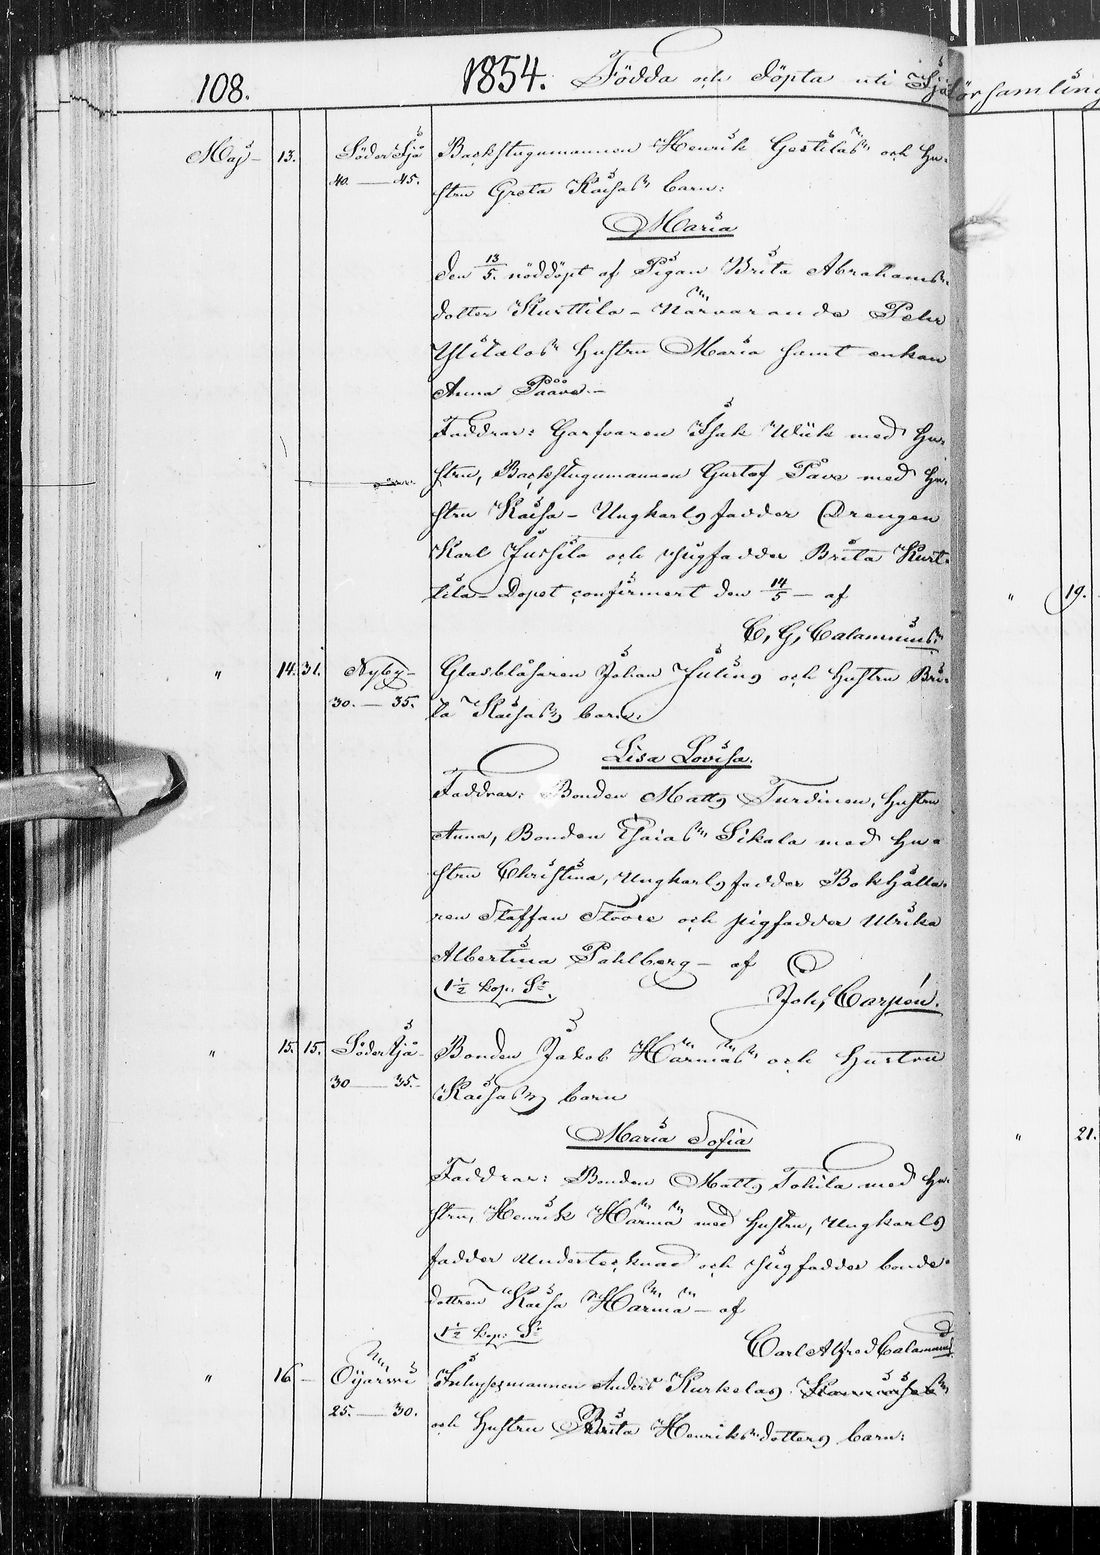 108. 1854. Födda och döpta uti Ijo församling
Maj 13. Söder Ijo Backstugumannen Henrik Gestilas och hu-
40. — 45. stru Greta Kaisas barn:
Maria
den 13/5 nöddöpt af Pigan Brita Abrahams-
dotter Kurttila – Närvarande Pehr
Ylitalos hustru Maria samt enkan
Anna Paavo –
Faddrar: Garfvaren Isak Wiik med hu-
stru, Backstugumannen Gustaf Pave med hu-
stru Kaisa – Ungkarlsfadder Drengen
Karl Jussila och pigfadder Brita Kurt-
tila – Dopet confirmert den 14/5 – af
C. G. Calamnius.
" 14. 31. Nyby – Glasblåsaren Johan Juling och hustru Bri-
30. — 35. ta Kaisas barn:
Lisa Lovisa.
Faddrar: Bonden Matts Turdinen, hustru
Anna, Bonden Esaias Sikala med hu-
stru Christina, Ungkarlsfadder Bokhålla-
ren Staffan Toore och pigfadder Ulrika
Albertina Pahlberg – af
1½ kop. Sr. Joh. Carpén.
" 15. 15. Söder Ijo – Bonden Jakob Härmäs och hustru
30 — 35. Kaisas barn
Maria Sofia
Faddrar: Bonden Matts Tokila med hu-
stru, Henrik Härmä med hustru, Ungkarls
fadder Undertecknad och pigfadder bonde-
dottren Kaisa Härmä – af
1½ kop. Sr Carl Alfred Calamnius
" 16 – Oijärwi Inhysesmannen Anders Kurkelas
25. — 30. och hustru Brita Henriksdotters barn:
" 19.
" 21.